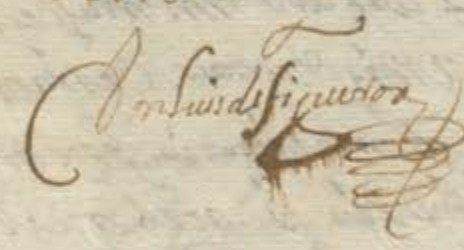 Don Luis de Figueroa